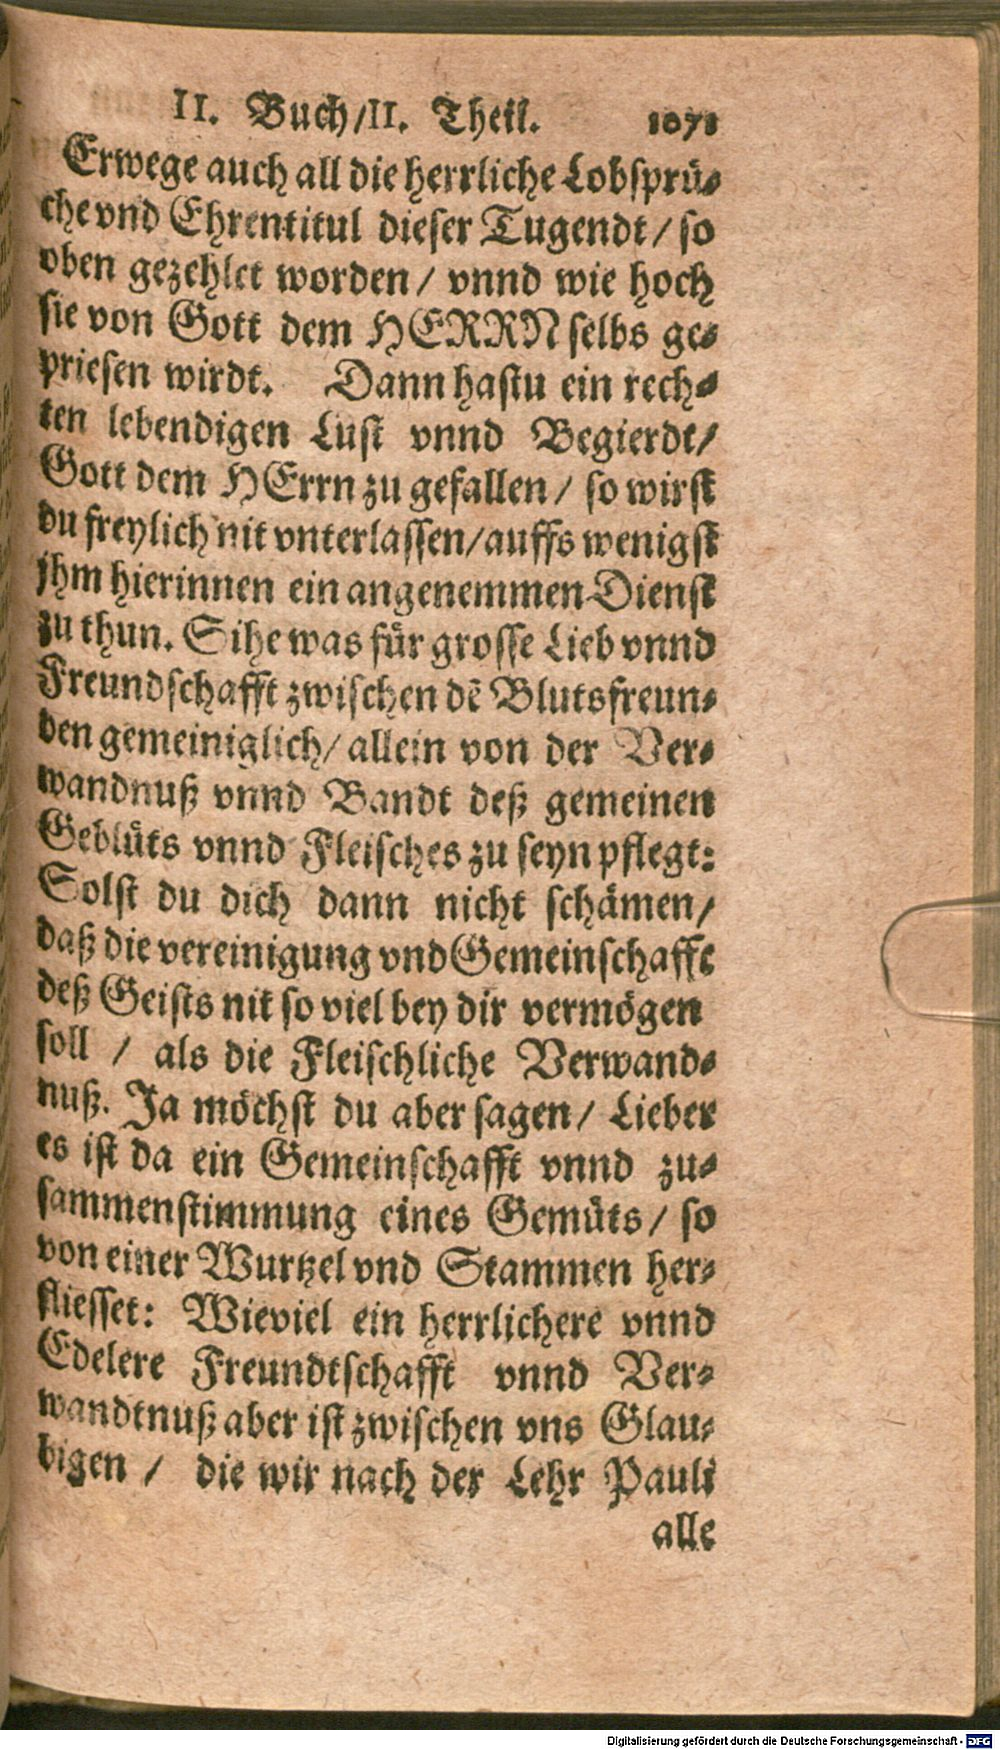 II. Buch/II. Theil. 1071
Erwege auch all die herrliche Lobsprü-
che vnd Ehrentitul dieser Tugendt / so
oben gezehlet worden / vnnd wie hoch
sie von Gott dem HERRN selbs ge-
priesen wirdt. Dann hastu ein rech-
ten lebendigen Lust vnnd Begierdt/
Gott dem HErrn zu gefallen / so wirst
du freylich nit vnterlassen/auffs wenigst
jhm hierinnen ein angenemmen Dienst
zu thun. Sihe was für grosse Lieb vnnd
Freundschafft zwischen dē Blutsfreun-
den gemeiniglich/ allein von der Ver-
wandnuß vnnd Bandt deß gemeinen
Geblüts vnnd Fleisches zu seyn pflegt:
Solst du dich dann nicht schämen/
daß die vereinigung vnd Gemeinschafft
deß Geists nit so viel bey dir vermögen
soll / als die Fleischliche Verwand-
nuß. Ja möchst du aber sagen/ Lieber
es ist da ein Gemeinschafft vnnd zu-
sammenstimmung eines Gemüts/ so
von einer Wurtzel vnd Stammen her-
fliesset: Wieviel ein herrlichere vnnd
Edelere Freundtschafft vnnd Ver-
wandtnuß aber ist zwischen vns Glau-
bigen / die wir nach der Lehr Pauli
alle
Digitalisierung gefördert durch die Deutsche Forschungsgemeinschaft - DFG